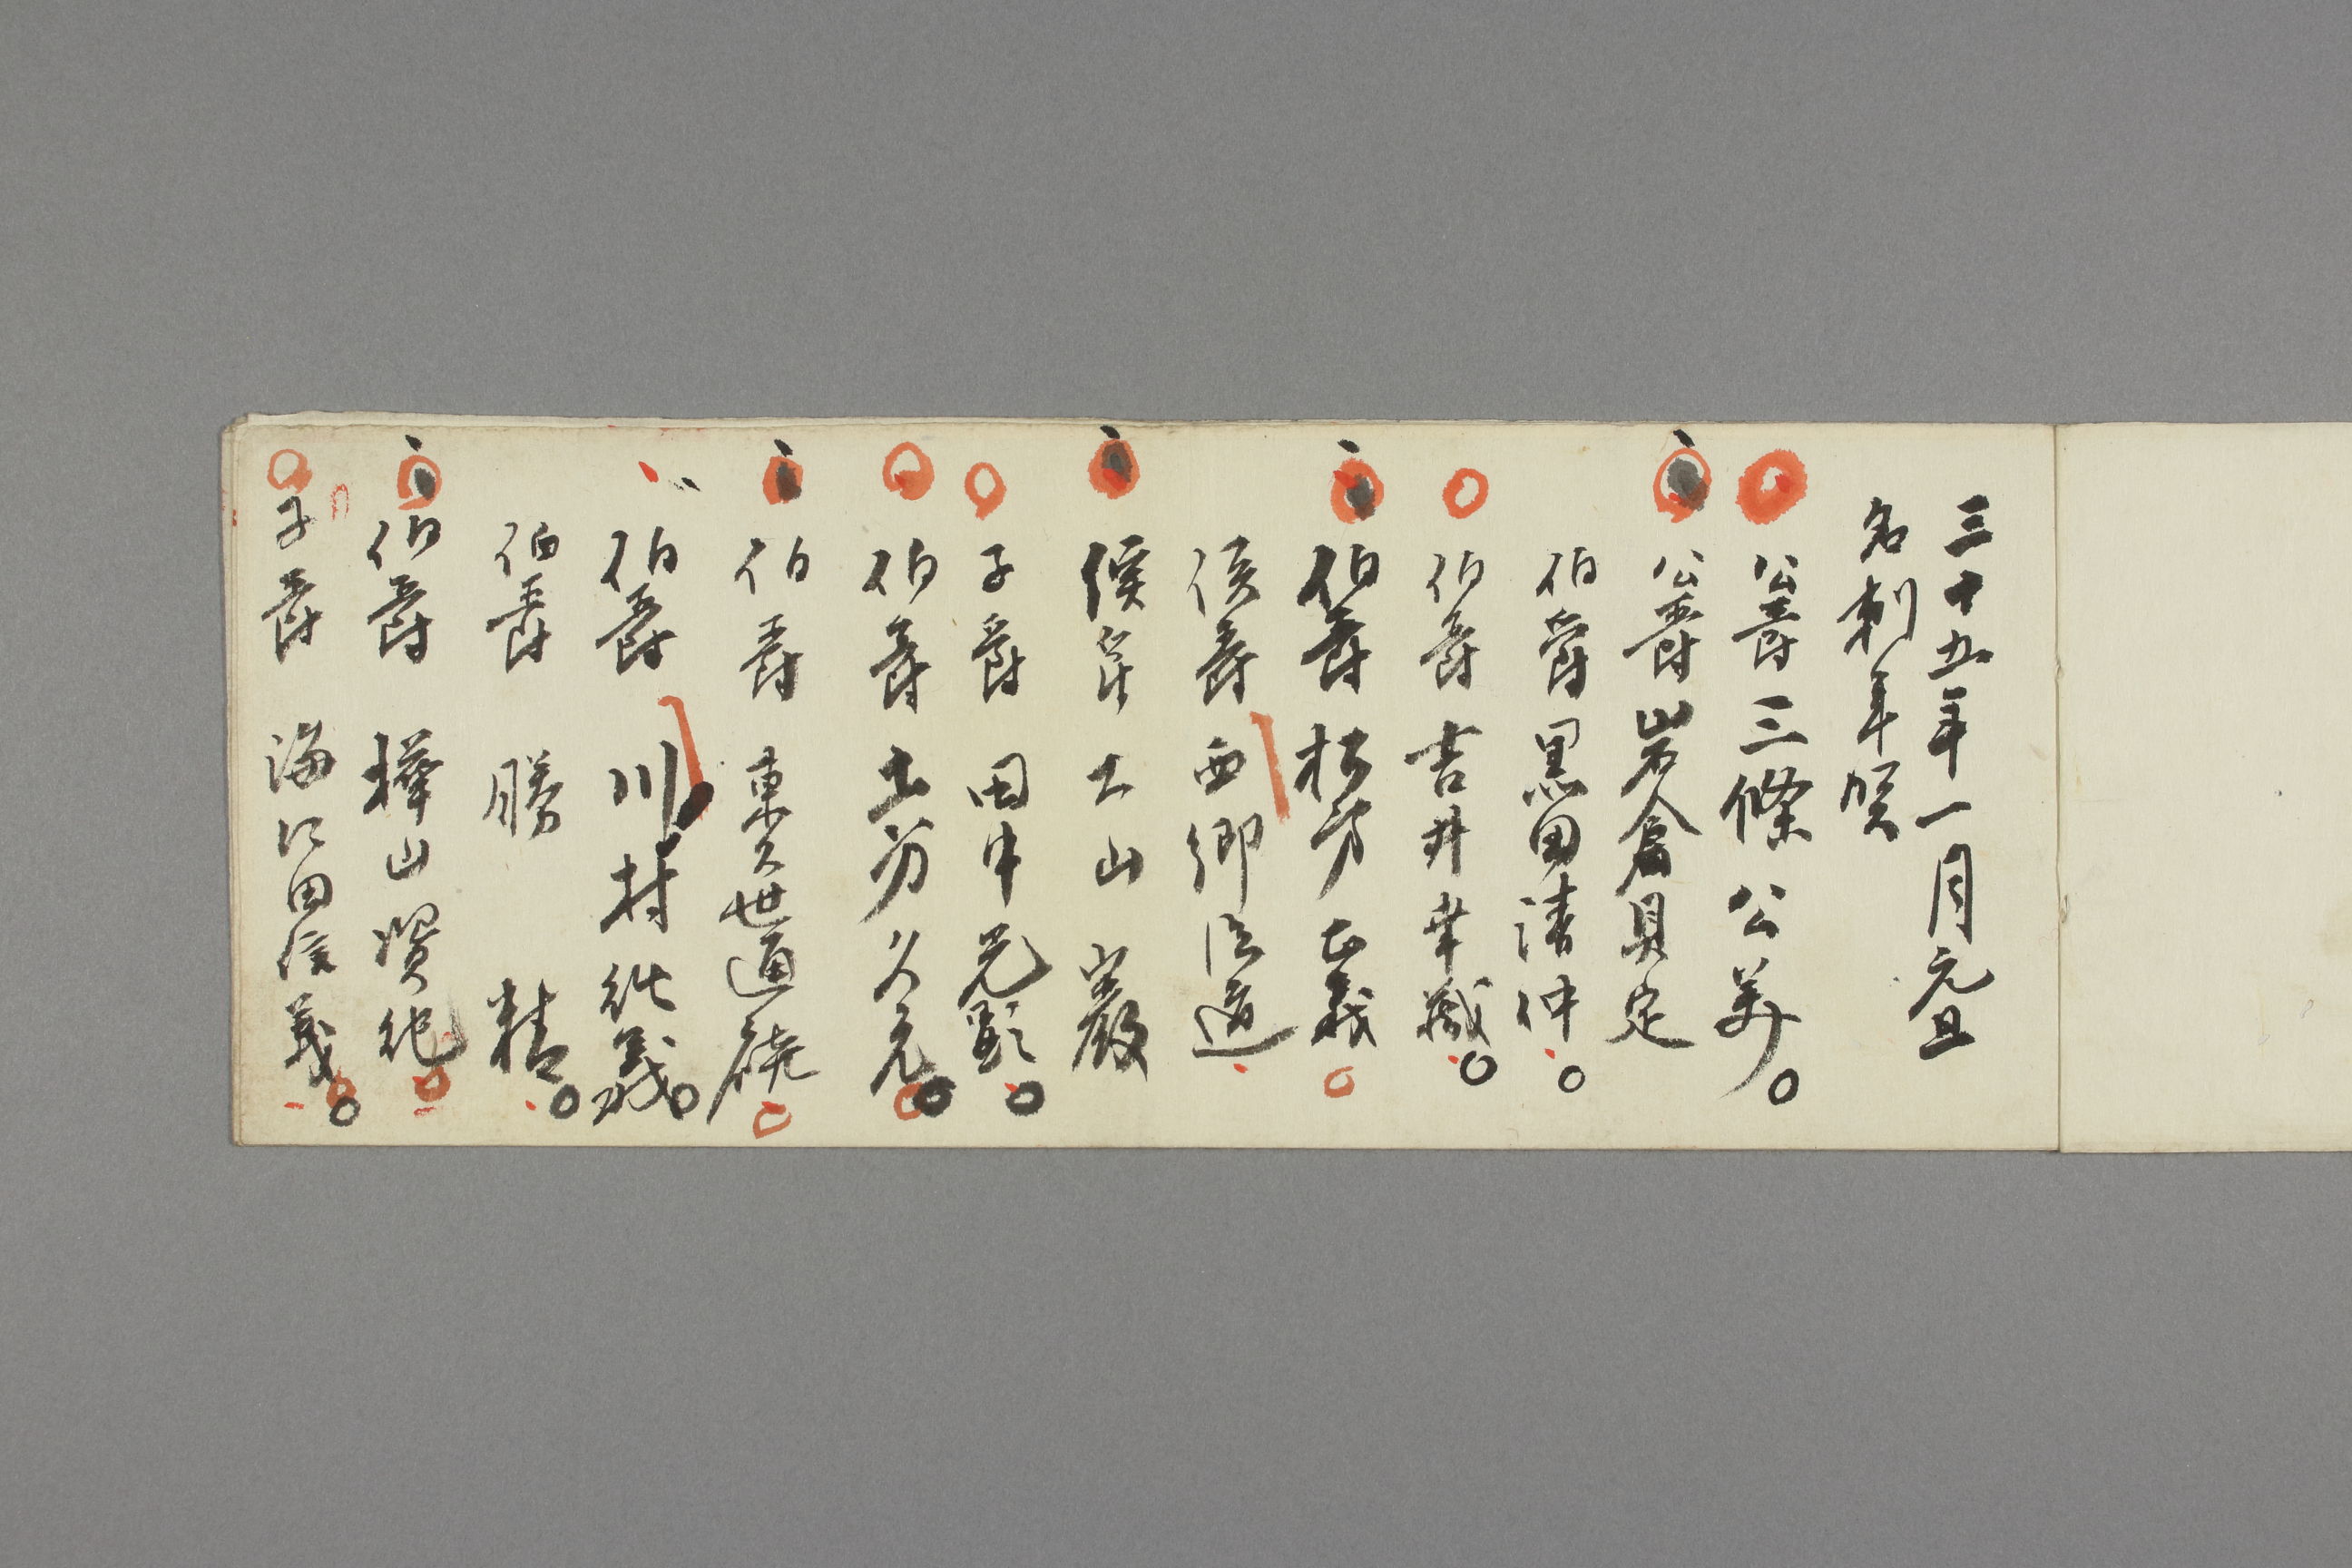 三十五年一月元旦
名刺年賀
公爵三條公美
公爵岩倉具定
伯爵黒田清仲
伯爵吉井幸藏
伯爵松方正義
侯爵西郷従道
侯爵大山巖
子爵田中光顕
伯爵土方久元
伯爵東久世通禧
伯爵川村純義
伯爵勝精
伯爵樺山資紀
子爵海江田信義